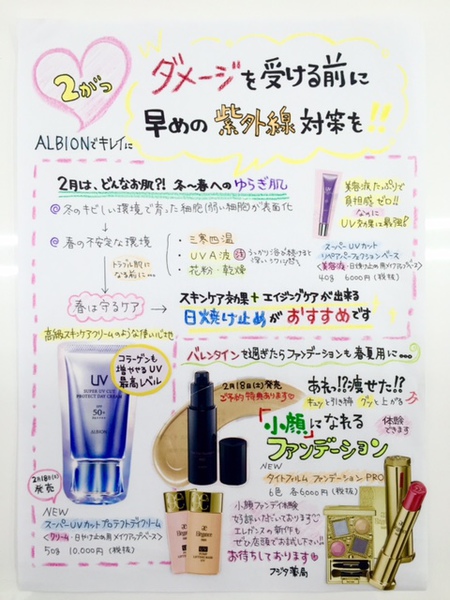 2がつ
ALBIONでキレイに
ダメージを受ける前に
早めの紫外線対策を!!
2月は、どんなお肌?! 冬〜春へのゆらぎ肌
@冬のキビしい環境で育った細胞(弱い細胞)が表面化
@春の不安定な環境
・三寒四温
・UVA波
・花粉・乾燥
トラブル肌に
なる前に…
春は守るケア
スキンケア効果+エイジングケアが出来る
日焼け止めがおすすめです
美容液たっぷりで
負担感ゼロ!!
なのに
UV効果に最強!
スーパーUVカット
<美容液・日焼け止め用メイクアップベース>
40g 6000円(税抜)
高級スキンケアクリームのような使い心地
コラーゲンも
増やせるUV
最高レベル
UV
SUPER UV CUT
PROTECT DAY CREAM
SPF
50+
PA++++
ALBION
2月18日(土)
発売
NEW
スーパーUVカットプロテクトデイクリーム
<クリーム・日やけ止め用メイクアップベース>
50g 10,000円(税抜)
バレンタインを過ぎたらファンデーションも春夏用に…
2月18日(土)発売
ご予約特典あります♡
あれっ!?痩せた!?
キュッと引き締 グッと上がる
「小顔」になれる
体験
できます
ファンデーション
NEW
ライトフィルム ファンデーション PRO
6色 各6,000円(税抜)
小顔ファンデ体験
好評いただいております♡
エレガンスの新作も
ぜひ店頭でお試し下さい!!
お待ちしております
フジタ薬局
Elégance
Elégance